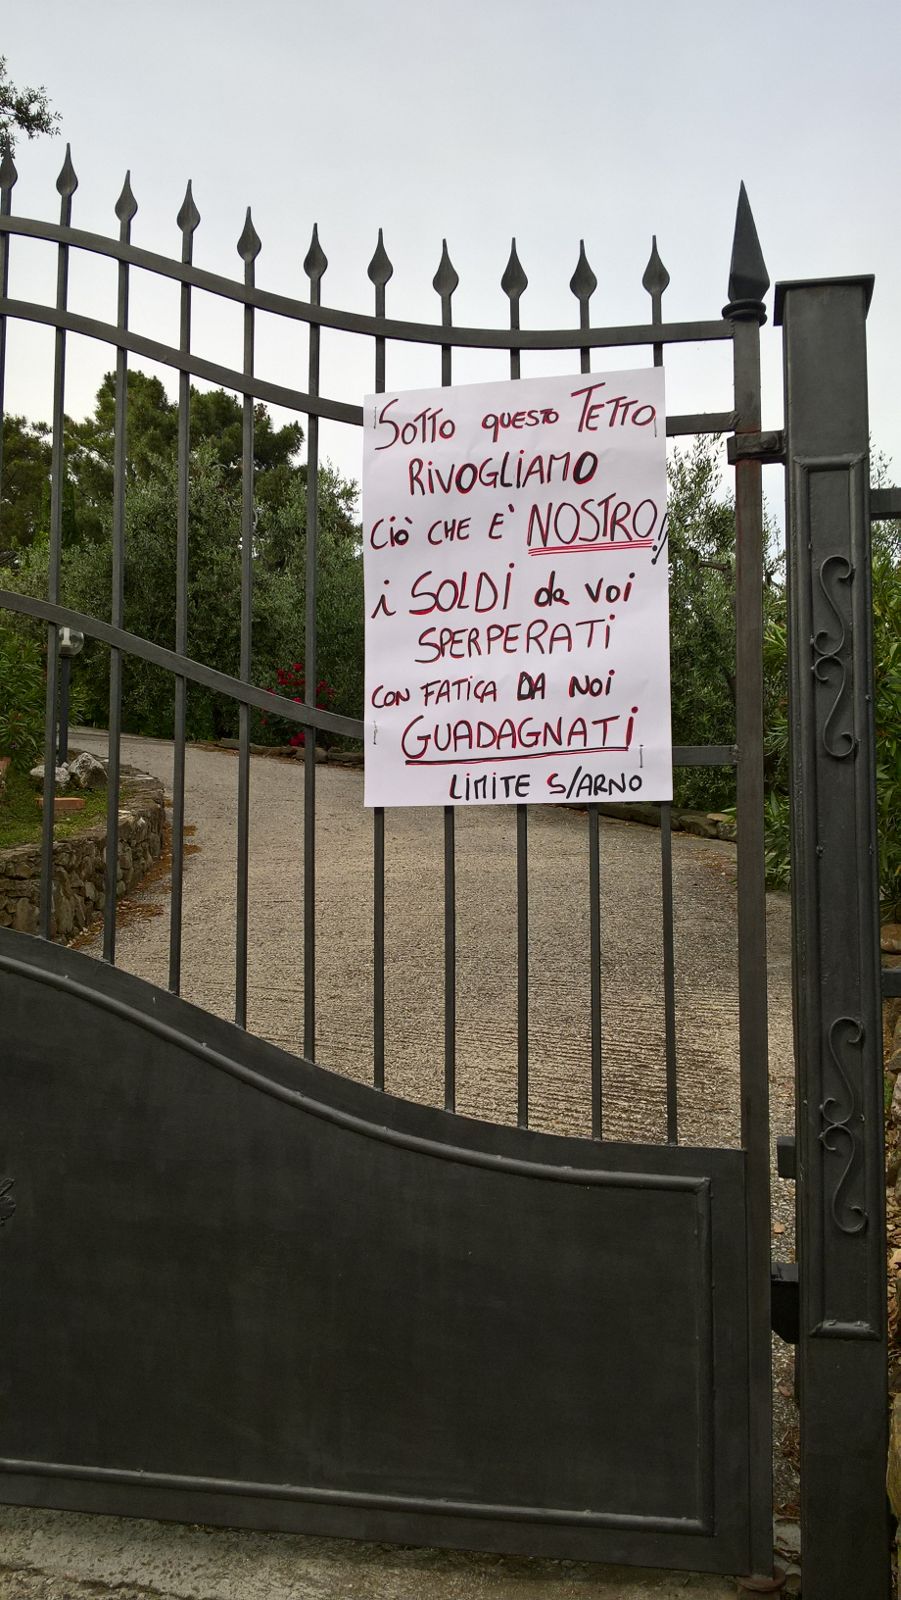 SOTTO QUESTO TETTO
RIVOGLIAMO
Ciò CHE E' NOSTRO!!
i SOLDI da voi
SPERPERATi
CON FATICA DA NOi
GUADAGNATi
LIMITE S/ARNO